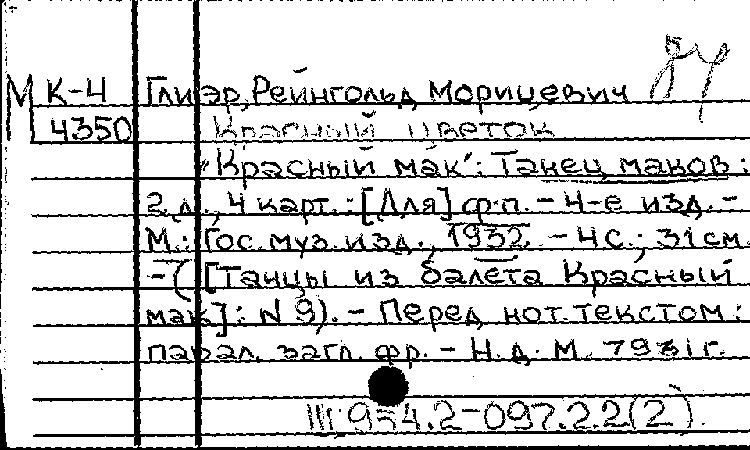 М К-4 Глиэр, Рейнгольд Морицевич
4350 Красный цветок
"Красный мак": Танец маков:
2 д., 4 карт.: [Для] ф-п. - 4-е изд. -
М.: Гос. муз. изд., 1932. - 4 с.; 31 см
- ([Танцы из балета Красный
мак]: N 9). - Перед нот. текстом:
парал. загл. фр. - Н. д. М. 7931 г.
III 954.2-097.2.2(2).